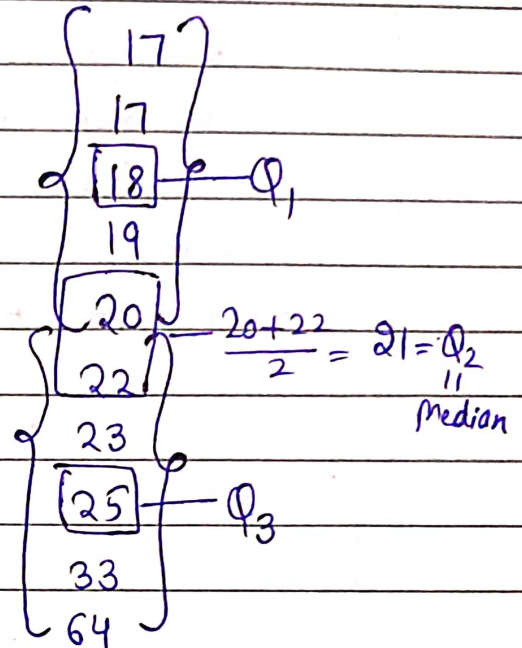 17
17
18 — Q₁
19
20
20+22 / 2 = 21 = Q₂
22
11
Median
23
25 — Q₃
33
64